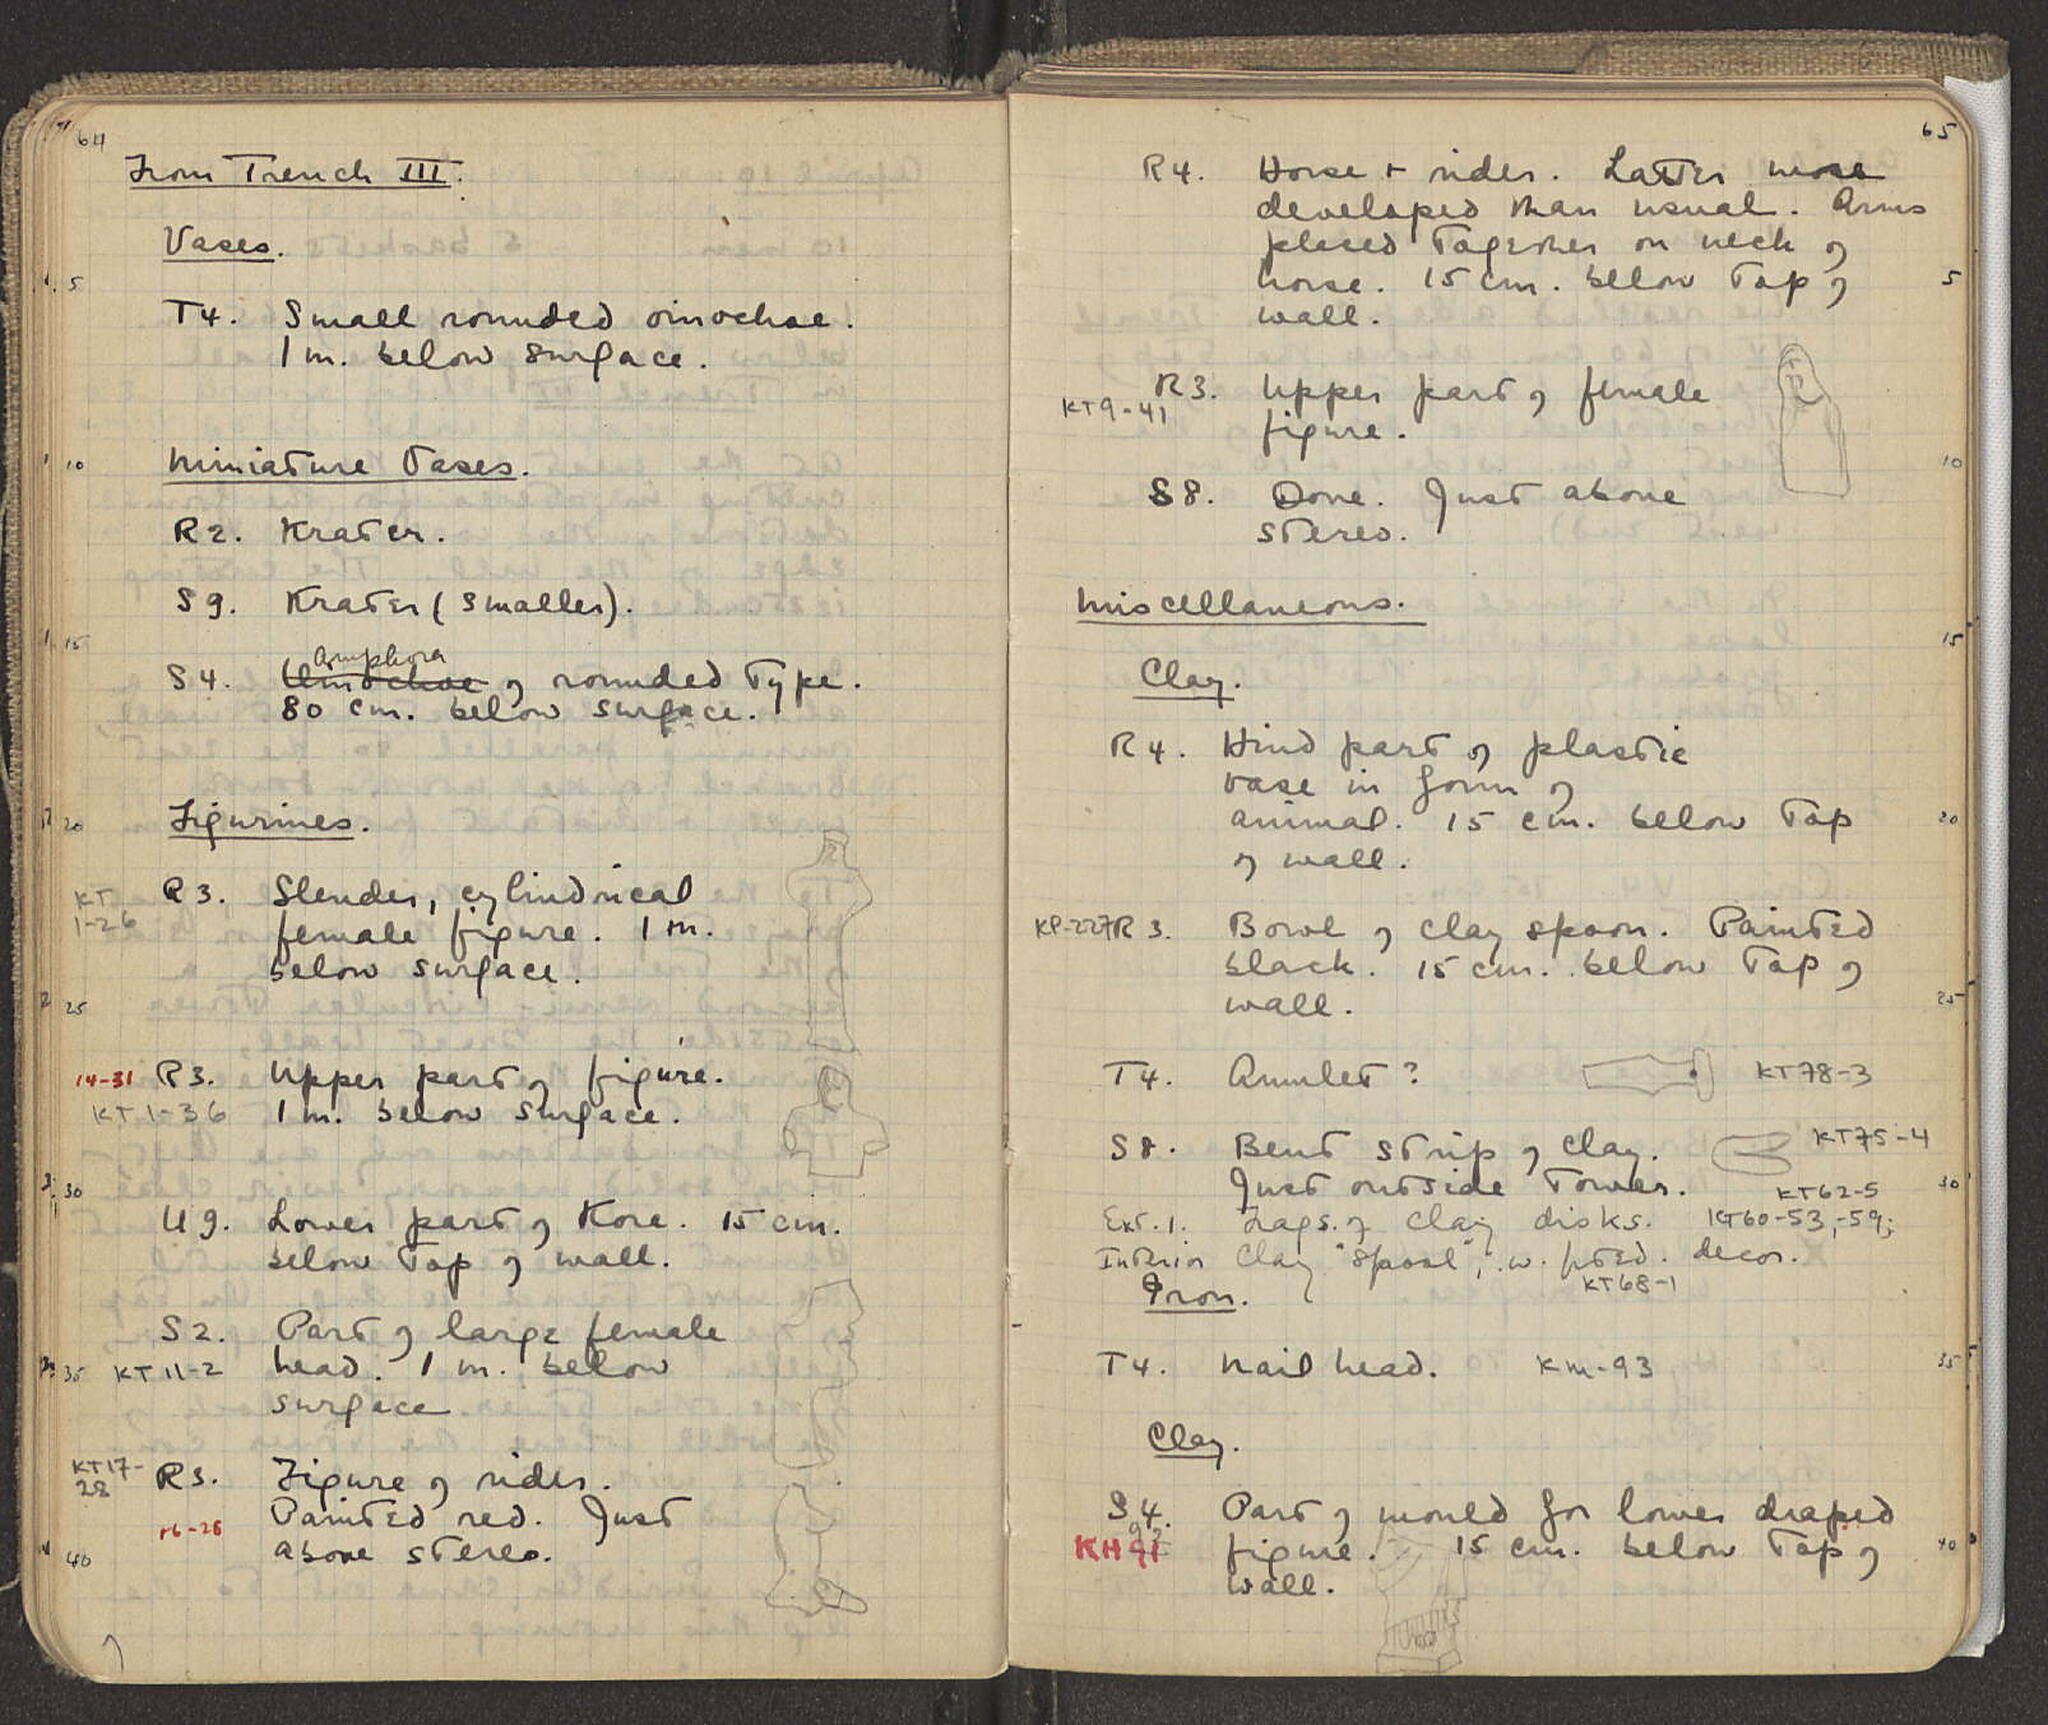 64
From Trench III.
Vases.
5
T4. Small rounded oinochoe.
1 m. below surface.
10
Miniature Vases.
R2. Krater.
S9. Krater (smaller).
15
Amphora
S4. Oinochoe of rounded type.
80 cm. below surface.
20
Figurines.
KT 1-26
R3. Slender, cylindrical
female figure. 1 m.
below surface.
25
14-31 R3. Upper part of figure.
KT 1-36 1 m. below surface.
30
U9. Lower part of Kore. 15 cm.
below top of wall.
S2. Part of large female
35 KT 11-2 head. 1 m. below
surface.
KT17-28
R3. Figure of rider.
Painted red. Just
above stereo.
40
65
R4. Horse + rider. Latter more
developed than usual. Arms
placed together on neck of
horse. 15 cm. below top of 5
wall.
R3. Upper part of female
KT9-41
figure.
10
S8. Done. Just above
stereo.
Miscellaneous.
15
Clay.
R4. Hind part of plastic
vase in form of
animal. 15 cm. below top 20
of wall.
KP-227 R3. Bowl of clay spoon. Painted
black. 15 cm. below top of
wall. 25
T4. Amulet? KT78-3
S8. Bent strip of clay. KT75-4
Just outside tower. 30
KT62-5
Ext. 1. Frags. of clay disks. KT60-53, -59;
Interior Clay "spool", w. pted. decor.
KT68-1
Iron.
T4. Nail head. KM-93 35
Clay.
S4. Part of mould for lower draped
KH 91 figure. 15 cm. below top of 40
wall.